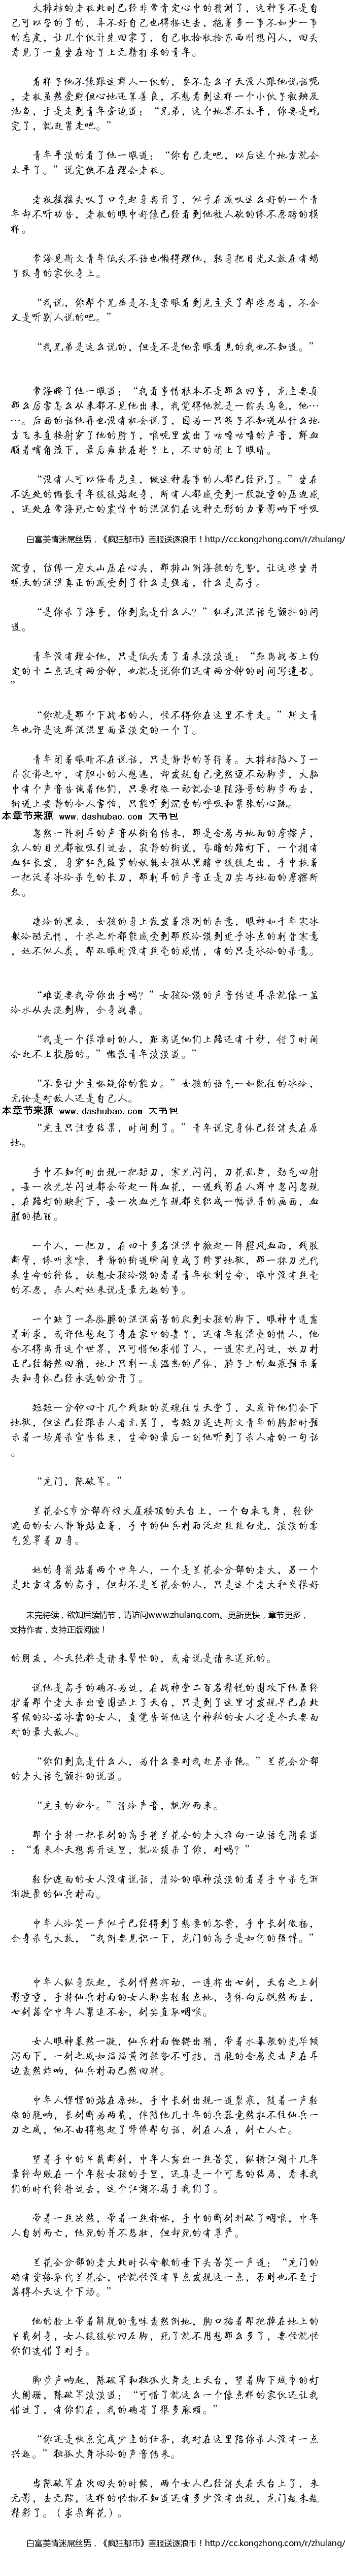 大排档的老板此时已经非常肯定心中的猜测了，这种事不是自
己可以管的了的，弄不好自己也得搭进去，抱着多一事不如少一事
的态度，让几个伙计先回家了，自己收拾收拾东西刚想闪人，回头
看见了一直坐在椅子上无精打采的青年。
看样子他不像跟这群人一伙的，要不怎么半天没人跟他说话呢
，老板虽然爱财但心地还算善良，不想看到这样一个小伙子被殃及
池鱼，于是走到青年旁边道：“兄弟，这个地界不太平，你要是吃
完了，就赶紧走吧。”
青年平淡的看了他一眼道：“你自己走吧，以后这个地方就会
太平了。”说完便不在理会老板。
老板摇摇头叹了口气起身离开了，似乎在感叹这么好的一个青
年却不听劝告，老板的眼中好像已经看到他被人砍的惨不忍睹的模
样。
常海见斯文青年低头不语也懒得理他，转身把目光又放在有蝎
子纹身的家伙身上。
“我说，你那个兄弟是不是亲眼看到龙主灭了那些忍者，不会
又是听别人说的吧。”
“我兄弟是这么说的，但是不是他亲眼看见的我也不知道。”
常海瞪了他一眼道：“我看事情根本不是那么回事，龙主要真
那么厉害怎么从来都不见他出来，我觉得他就是一缩头乌龟，他…
…。后面的话他再也没有机会说了，因为一只筷子不知道从什么地
方飞来直接射穿了他的脖子，喉咙里发出了咕噜咕噜的声音，鲜血
顺着嘴角流下，最后瘫软在椅子上，不甘的闭上了眼睛。
“没有人可以侮辱龙主，做这种蠢事的人都已经死了。”坐在
不远处的懒散青年缓缓站起身，所有人都感受到一股凝重的压迫感
，还处在常海死亡的震惊中的混混们在这种无形的力量影响下呼吸
白富美情迷屌丝男，《疯狂都市》首服送逐浪币！http://cc.kongzhong.com/r/zhulang/
沉重，仿佛一座大山压在心头，那排山倒海般的气势，让这些坐井
观天的混混真正的感受到了什么是强者，什么是高手。
“是你杀了海哥，你到底是什么人？”红毛混混语气颤抖的问
道。
青年没有理会他，只是低头看了看表淡淡道：“距离战书上约
定的十二点还有两分钟，也就是说你们还有两分钟的时间写遗书。
”
“你就是那个下战书的人，怪不得你在这里不肯走。”斯文青
年也许是这群混混里面最淡定的一个了。
青年闭着眼睛不在说话，只是静静的等待着。大排档陷入了一
片寂静之中，有胆小的人想逃，却发现自己竟然迈不动脚步，大脑
中有个声音告诫着他们，只要稍微一动就会追随海哥的脚步而去，
街道上安静的令人害怕，只能听到沉重的呼吸和紧张的心跳。
本章节来源 www.dashubao.com 大书包
忽然一阵刺耳的声音从街角传来，那是金属与地面的摩擦声，
众人的目光都被吸引过去，寂静的街道，昏暗的路灯下，一个拥有
血红长发，身穿红色绫罗的妖魅女孩从黑暗中缓缓走出，手中拖着
一把泛着冰冷杀气的长刀，那刺耳的声音正是刀尖与地面的摩擦所
致。
凄冷的黑夜，女孩的身上散发着凛冽的杀意，眼神如千年寒冰
般冷酷无情，十米之外都能感受到那股冷漠到近乎冰点的刺骨寒意
，她不似人类，那双眼睛没有丝毫的感情，有的只是冰冷的杀意。
“难道要我帮你出手吗？”女孩冷漠的声音传进耳朵就像一盆
冷水从头浇到脚，全身战栗。
“我是一个很准时的人，距离送他们上路还有十秒，错了时间
会赶不上投胎的。”懒散青年淡淡道。
“不要让少主怀疑你的能力。”女孩的语气一如既往的冰冷，
无论是对敌人还是自己人。
本章节来源 www.dashubao.com 大书包
“龙主只注重结果，时间到了。”青年说完身体已经消失在原
地。
手中不知何时出现一把短刀，寒光闪闪，刀花乱舞，劲气四射
，每一次光芒闪过都会带起一阵血花，一道残影在人群中忽闪忽现
，在路灯的映射下，每一次血光乍现都交织成一幅诡异的画面，血
腥的艳丽。
一个人，一把刀，在四十多名混混中掀起一阵腥风血雨，残肢
断臂，惨叫哀嚎，平静的街道瞬间变成了修罗地狱，那一抹刀光代
表生命的终结，妖魅女孩冷漠的看着青年收割生命，眼中没有丝毫
的不忍，杀人对她来说是最无趣的事。
一个缺了一条胳膊的混混痛苦的爬到女孩的脚下，眼神中透露
着祈求，或许他想起了身在家中的妻子，还有年轻漂亮的情人，他
舍不得离开这个世界，只可惜他求错了人，一道寒光闪过，妖刀村
正已经骤然回鞘，地上只剩一具温热的尸体，脖子上的血痕预示着
头和身体已经永远的分开了。
短短一分钟四十几个残缺的灵魂往生天堂了，又或许他们会下
地狱，但这已经跟杀人者无关了，当短刀送进斯文青年的胸膛时预
示着一场屠杀宣告结束，生命的最后一刻他听到了杀人者的一句话
。
“龙门，陈破军。”
兰花会S市分部辉煌大厦楼顶的天台上，一个白衣飞舞，轻纱
遮面的女人静静站立着，手中的仙兵村雨泛起丝丝白光，淡淡的雾
气笼罩着刀身。
她的身前站着两个中年人，一个是兰花会分部的老大，另一个
是北方有名的高手，但却不是兰花会的人，只是这个老大和交很好
未完待续，欲知后续情节，请访问www.zhulang.com。更新更快，章节更多，
支持作者，支持正版阅读！
的朋友，今天纯粹是请来帮忙的，或者说是请来送死的。
说他是高手的确不为过，在战神堂二百名精锐的围攻下他最终
护着那个老大杀出重围逃上了天台，只是到了这里才发现早已在此
等候的冷若冰霜的女人，直觉告诉他这个神秘的女人才是今天要面
对的最大敌人。
“你们到底是什么人，为什么要对我赶尽杀绝。”兰花会分部
的老大语气颤抖的说道。
“龙主的命令。”清冷声音，飘渺而来。
那个手持一把长剑的高手将兰花会的老大推向一边语气阴森道
：“看来今天想离开这里，就必须杀了你，对吗？”
轻纱遮面的女人没有说话，清冷的眼神淡淡的看着手中杀气渐
渐凝聚的仙兵村雨。
中年人冷笑一声似乎已经得到了想要的答案，手中长剑微扬，
全身杀气大放，“我倒要见识一下，龙门的高手是如何的强悍。”
中年人纵身跃起，长剑悍然挥动，一连挥出七剑，天台之上剑
影重重，手持仙兵村雨的女人脚尖轻轻点地，身体向后飘然而去，
七剑落空中年人紧追不舍，剑尖直取咽喉。
女人眼神蓦然一凝，仙兵村雨铿锵出鞘，带着水幕般的光华倾
泻而下，一剑之威如滔滔黄河般势不可挡，清脆的金属交击声在耳
边轰然炸响，仙兵村雨已然回鞘。
中年人愣愣的站在原地，手中长剑出现一道裂痕，随着一声轻
微的脆响，长剑断为两截，伴随他几十年的兵器竟然抵不住仙兵一
刀之威，他不由得想起了师傅那句话，剑在人在，剑亡人亡。
望着手中的半截断剑，中年人露出一丝苦笑，纵横江湖十几年
最终却败在一个年轻女孩的手里，还真是一个可悲的结局，看来我
们的时代终将过去，这个江湖不属于我们了。
带着一丝决然，带着一丝释怀，手中的断剑刺破了咽喉，中年
人自刎而亡，他死的并不悲壮，但却死的有尊严。
兰花会分部的老大此时认命般的垂下头苦笑一声道：“龙门的
确有资格取代兰花会，怪就怪没有早点发现这一点，否则也不至于
落得今天这个下场。”
他的脸上带着解脱的意味轰然倒地，胸口插着那把掉在地上的
半截剑身，女人缓缓收回左脚，死了就不用想那么多了，要怪就怪
你们选错了对手。
脚步声响起，陈破军和独孤火舞走上天台，望着脚下城市的灯
火阑珊，陈破军淡淡道：“可惜了就这么一个像点样的家伙还让我
错过了，有你们在，我的确省了很多麻烦。”
“你还是快点完成少主的任务，我对在这里陪你杀人没有一点
兴趣。”独孤火舞冰冷的声音传来。
当陈破军在次回头的时候，两个女人已经消失在天台上了，来
无影，去无踪，这样的怪物不知道还有多少没有出现，龙门越来越
精彩了。（求朵鲜花）。
白富美情迷屌丝男，《疯狂都市》首服送逐浪币！http://cc.kongzhong.com/r/zhulang/